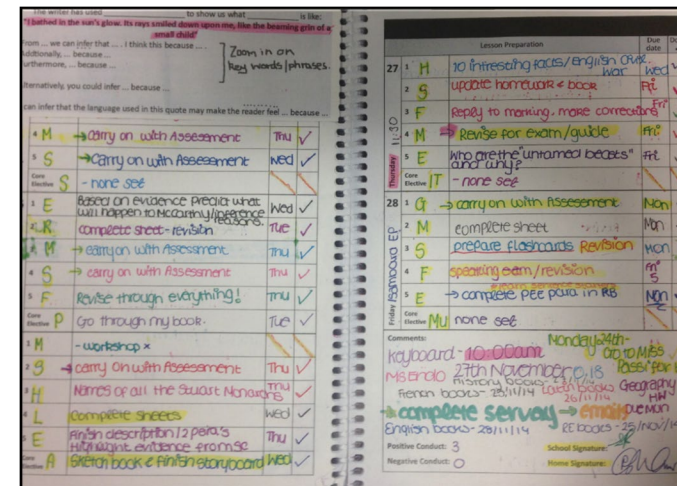 The writer has used to show us what is like:
"I bathed in the sun's glow. Its rays smiled down upon me, like the beaming grin of a
small child"
From ... we can infer that .... I think this because ...
Additionally, ... because ...
Furthermore, ... because ...
Zoom in on
key words/phrases.
Alternatively, you could infer ... because ...
can infer that the language used in this quote may make the reader feel ... because ...
4 M → carry on with Assessment Thu ✓
5 S → carry on with Assessment Wed ✓
Core Elective S - none set
1 E Based on evidence predict what
will happen to McCarthy/inference
reasons. Wed ✓
2 R complete sheet - revision Tue ✓
3 M → carry on with Assessment Thu ✓
4 S → carry on with Assessment Thu ✓
5 F Revise through everything! Thu ✓
Core Elective P Go through my book. Tue ✓
1 M - workshop x
2 S → carry on with Assessment Thu ✓
3 H Names of all the Stuart Monarchs Thu ✓
4 L Complete sheets Wed ✓
5 E Finish description/2 para's
Highlight evidence from sc Thu ✓
Core Elective A Sketch book & finish storyboard Wed ✓
Lesson Preparation Due date
27 1 H 10 intresting facts/English Civil
war Wed
2 S update homework & book Fri
3 F Reply to marking, more corrections Fri
4 M → Revise for exam/guide Fri
5 E Who are the "untamed beasts"
and why? Fri
Core Elective IT - none set
Thursday 11:30
28 1 G → carry on with Assessment Mon
2 M complete sheet Mon
3 S prepare flashcards Revision Mon
4 F speaking exam/revision Fri 5
5 E → complete PEE para in RB Mon
Core Elective Mu none set
Friday
Comments:
Keyboard - 10:00am
Monday 24th -
Go to Miss
27th November
History books -
Geography
26/11/14
→ complete servay → email
English books - 28/11/14
RE books - 25/Nov/14
Positive Conduct: 3
School Signature:
Negative Conduct: 0
Home Signature: